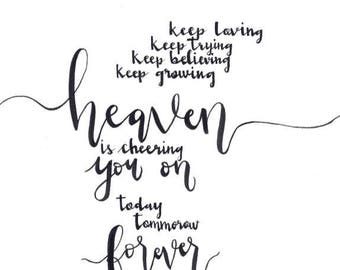 keep loving
keep trying
keep believing
keep growing
heaven
is cheering
you on
today
tommorow
forever